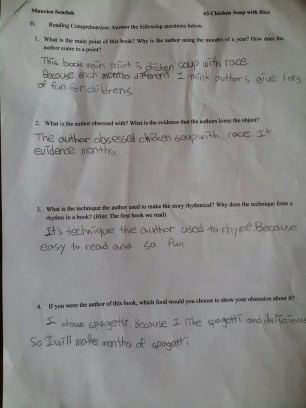 Maurice Sendak #3 Chicken Soup with Rice
II. Reading Comprehension: Answer the following questions below.
1. What is the main point of this book? Why is the author using the months of a year? How does the
author come to a point?
This book main point is chicken soup with race
Because each months different I think authors give lots
of fun for childrens
2. What is the author obsessed with? What is the evidence that the authors loves the object?
The author obsessed chicken soup with race. It
evidence months.
3. What is the technique the author used to make the story rhythmical? Why does the technique form a
rhythm in a book? (Hint: The first book we read)
It's technique the author used to rhyme. Because
easy to read and so fun
4. If you were the author of this book, which food would you choose to show your obsession about it?
I choose spagetti. Because I like spagetti and delicious
So I will make months of spagetti